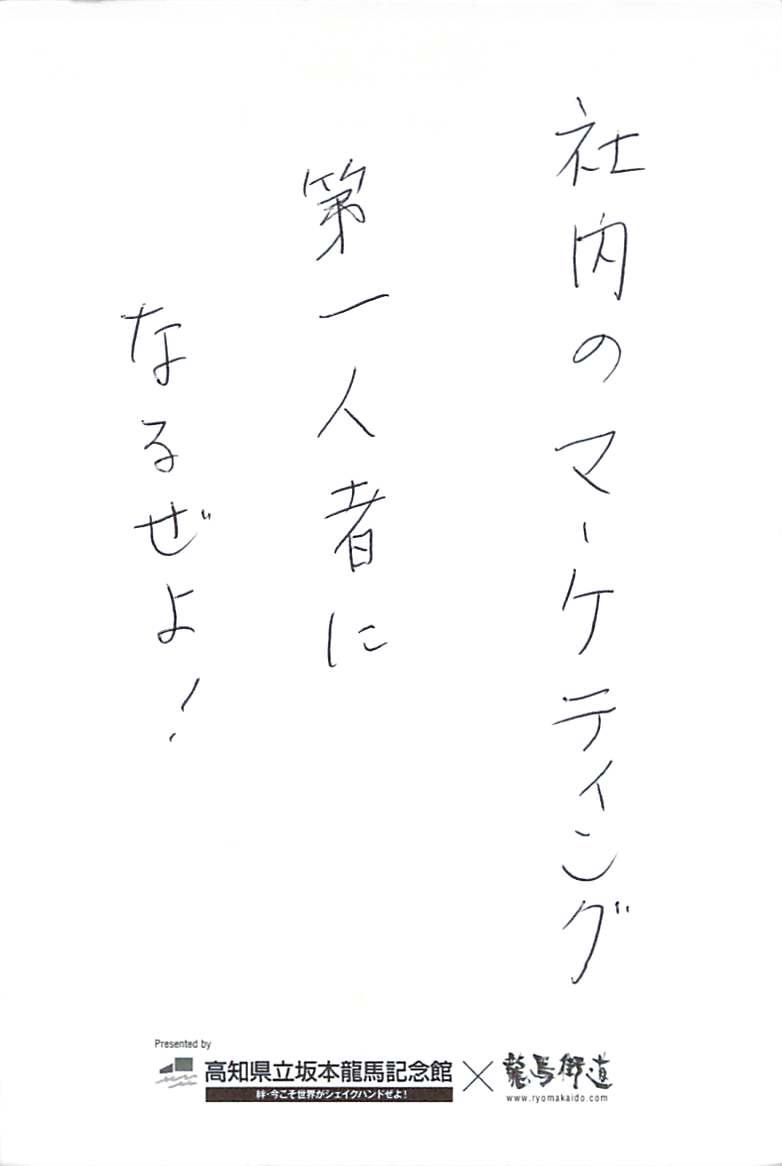 社内のマーケティング
第一人者に
なるぜよ！
Presented by
高知県立坂本龍馬記念館×龍馬街道
絆・今こそ世界がシェイクハンドぜよ！
www.ryomakaido.com